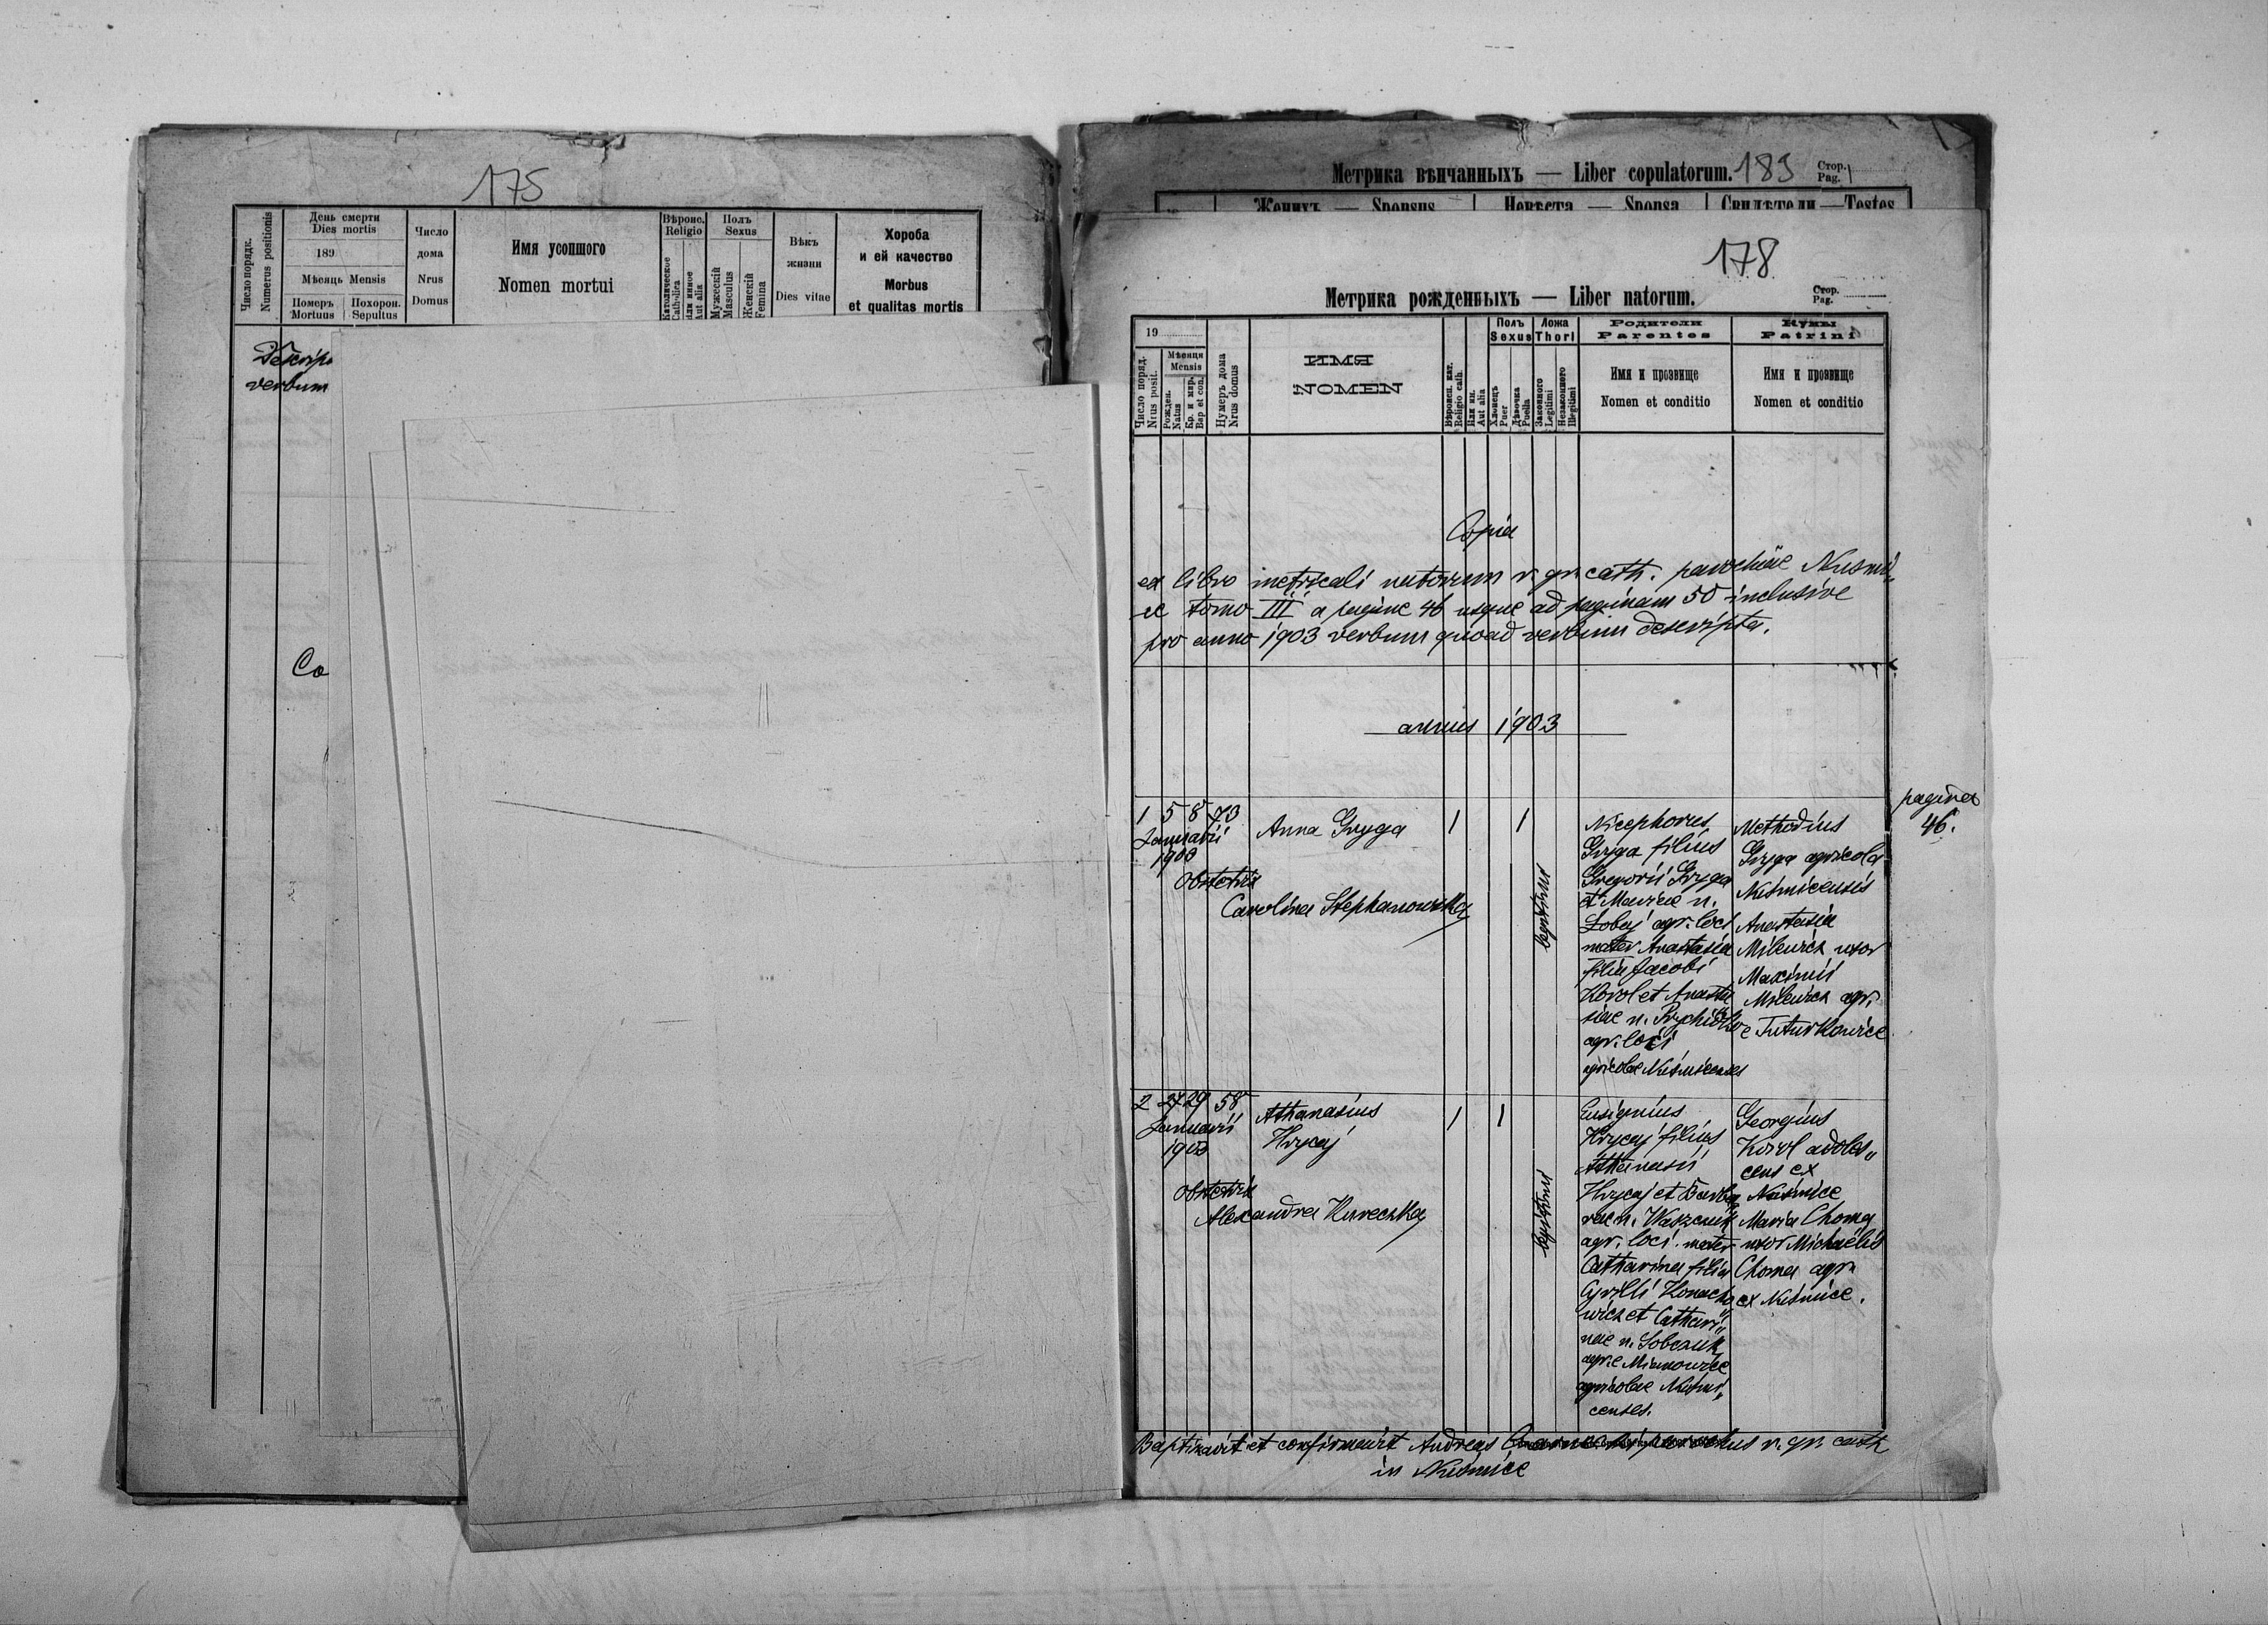 175
Число порядк.
Numerus positionis
День смерти
Dies mortis
189
Мѣсяць Mensis
Померъ
Mortuus
Похорон.
Sepultus
Число
дома
Nrus
Domus
Имя усопшого
Nomen mortui
Вѣроис.
Religio
Католическое
Catholica
или иное
Aut alia
Полъ
Sexus
Мужескій
Masculus
Женскій
Femina
Вѣкъ
жизни
Dies vitae
Хороба
и ей качество
Morbus
et qualitas mortis
Descrip
verbum
Co
Метрика вѣнчанныхъ — Liber copulatorum. 189 Стор.
Pag.
Женихъ — Sponsus Невѣста — Sponsa Свидѣтели — Testes
178
Метрика рожденныхъ — Liber natorum. Стор.
Pag.
19
Число поряд.
Nrus posit.
Мѣсяця
Mensis
Рожден.
Natus
Кр. и мир.
Bap et con.
Нумеръ дома
Nrus domus
ИМЯ
NOMEN
Вѣроисп. кат.
Religio cath.
Или ин.
Aut alia
Полъ
Sexus
Хлопець
Puer
Дѣвочка
Puella
Ложа
Thori
Законного
Legitimi
Незаконного
Illegitimi
Родители
Parentes
Имя и прозвище
Nomen et conditio
Кумы
Patrini
Имя и прозвище
Nomen et conditio
Copia
ex libro metricali natorum r. gr. cath. parochiae Nusmi„
ce tomo III a pagina 46 usque ad paginam 50 inclusive
pro anno 1903 verbum quoad verbum descripta.
annus 1903
pagina
46.
1 5 8 73
Januarii
1903
Anna Gryga
1 1
legitimi
obstetrix
Carolina Stephanowska
Nicephorus
Gryga filius
Gregorii Gryga
et Mariae n.
Lobaj agr. loci
mater Anastasia
filia Jacobi
Korol et Anasta
siae n.
agr. loci
agricolae Nusmicenses
Methodius
Gryga agricola
Nusmicensis
Anastasia
Milewicz uxor
Maximii
Milewicz agr.
e Tuturkowice
2 27 29 58
Januarii
1903
Athanasius
Hrycaj
1 1
legitimi
obstetrix
Alexandra Kureczka
Eusignius
Hrycaj filius
Athanasii
Hrycaj et Barba
rae n. Waszczuk
agr. loci. mater
Catharina filia
Cyrilli Konach
wicz et Cathari„
nae n. Sobczuk
agr. e Mianowice
agricolae Nusmi„
censes.
Georgius
Korol adoles„
cens ex
Nusmice
Maria Choma
uxor Michaëlis
Choma agr.
ex Nusmice.
Baptizavit et confirmavit Andreas parochus r. gr. cath
in Nusmice